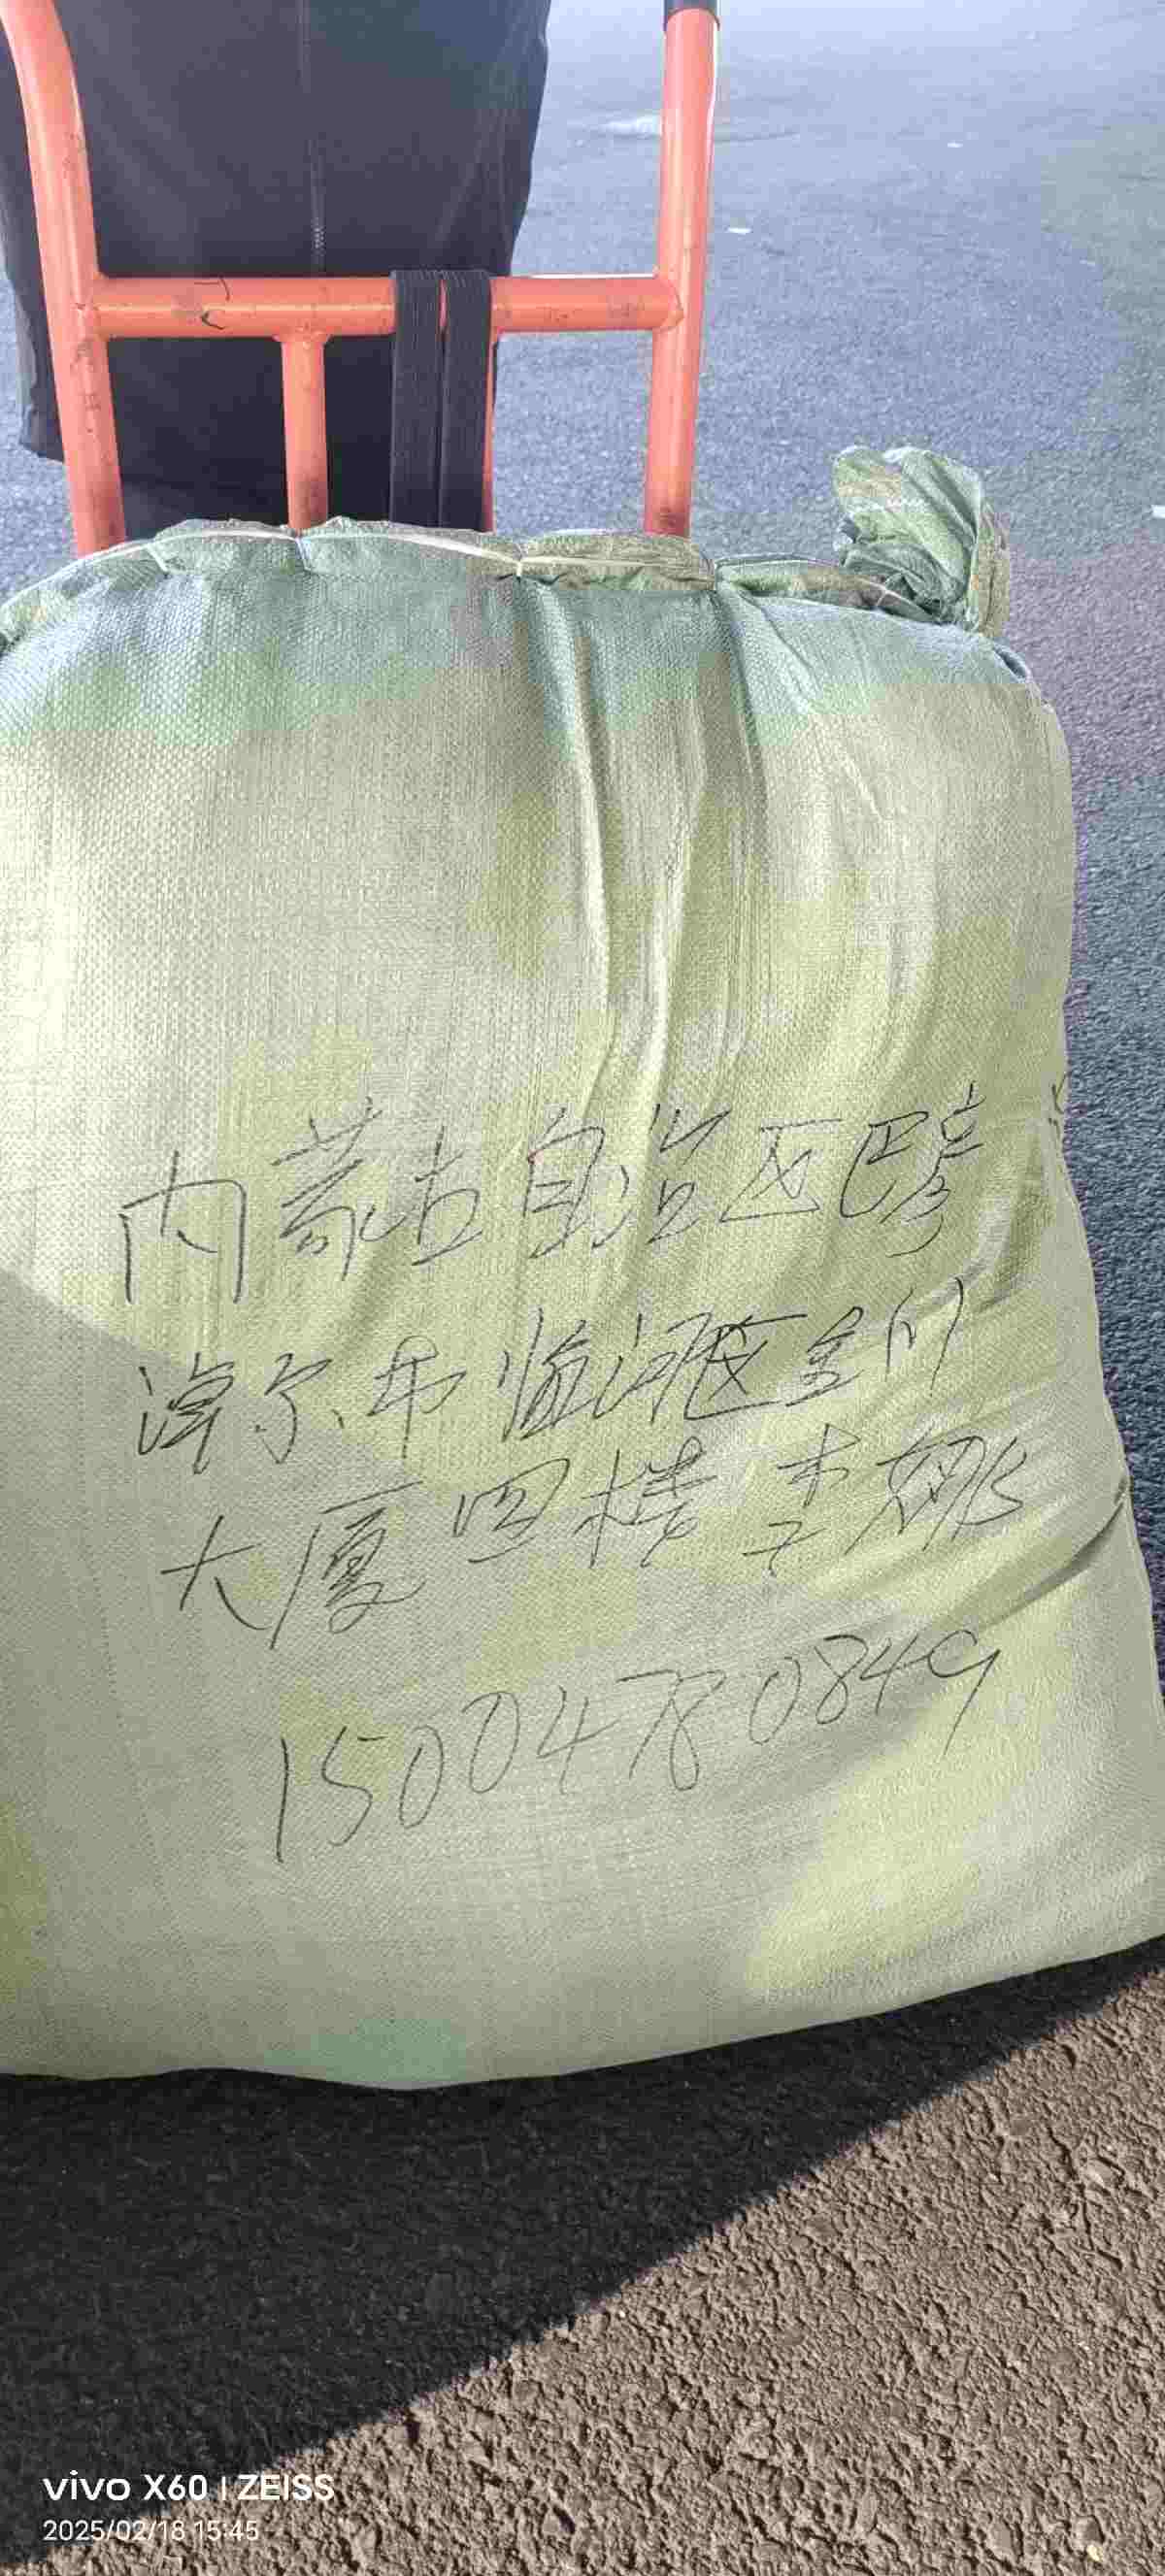 内蒙古自治区巴彦
淖尔市临河区金川
大厦四楼李娜
15004780849
vivo X60 | ZEISS
2025/02/18 15:45